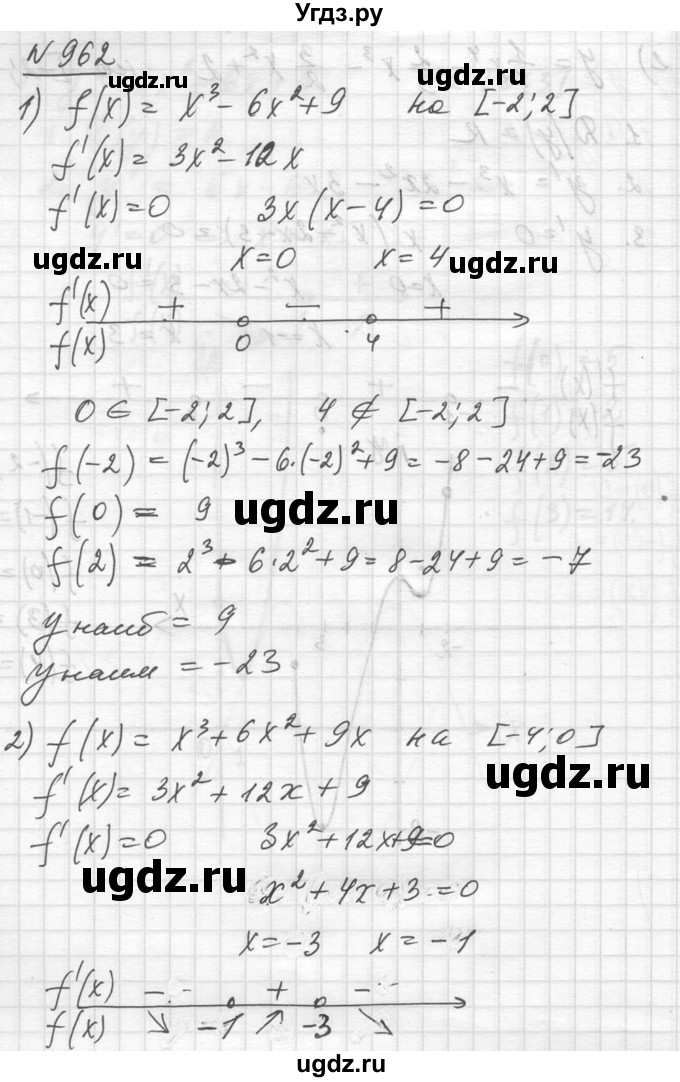 Угдз.ру
N 962
ugdz.ru
1) f(x) = x³ - 6x² + 9 на [-2; 2]
f'(x) = 3x² - 12x
f'(x) = 0 3x(x-4) = 0
ugdz.ru x=0 x=4 ugdz.ru
f'(x) + — +
f(x) 0 4
0 ∈ [-2; 2], 4 ∉ [-2; 2]
f(-2) = (-2)³ - 6·(-2)² + 9 = -8 - 24 + 9 = -23
f(0) = 9 ugdz.ru
f(2) = 2³ - 6·2² + 9 = 8 - 24 + 9 = -7
y наиб = 9
y наим = -23
2) f(x) = x³ + 6x² + 9x на [-4; 0]
ugdz.ru
f'(x) = 3x² + 12x + 9
f'(x) = 0 3x² + 12x + 9 = 0
ugdz.ru
x² + 4x + 3 = 0
x = -3 x = -1
f'(x) — + —
f(x) ↘ -1 ↗ -3 ↘
ugdz.ru